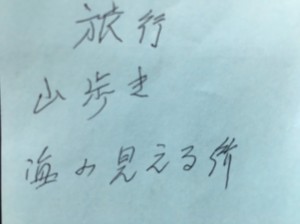 旅行
山歩き
海の見える街